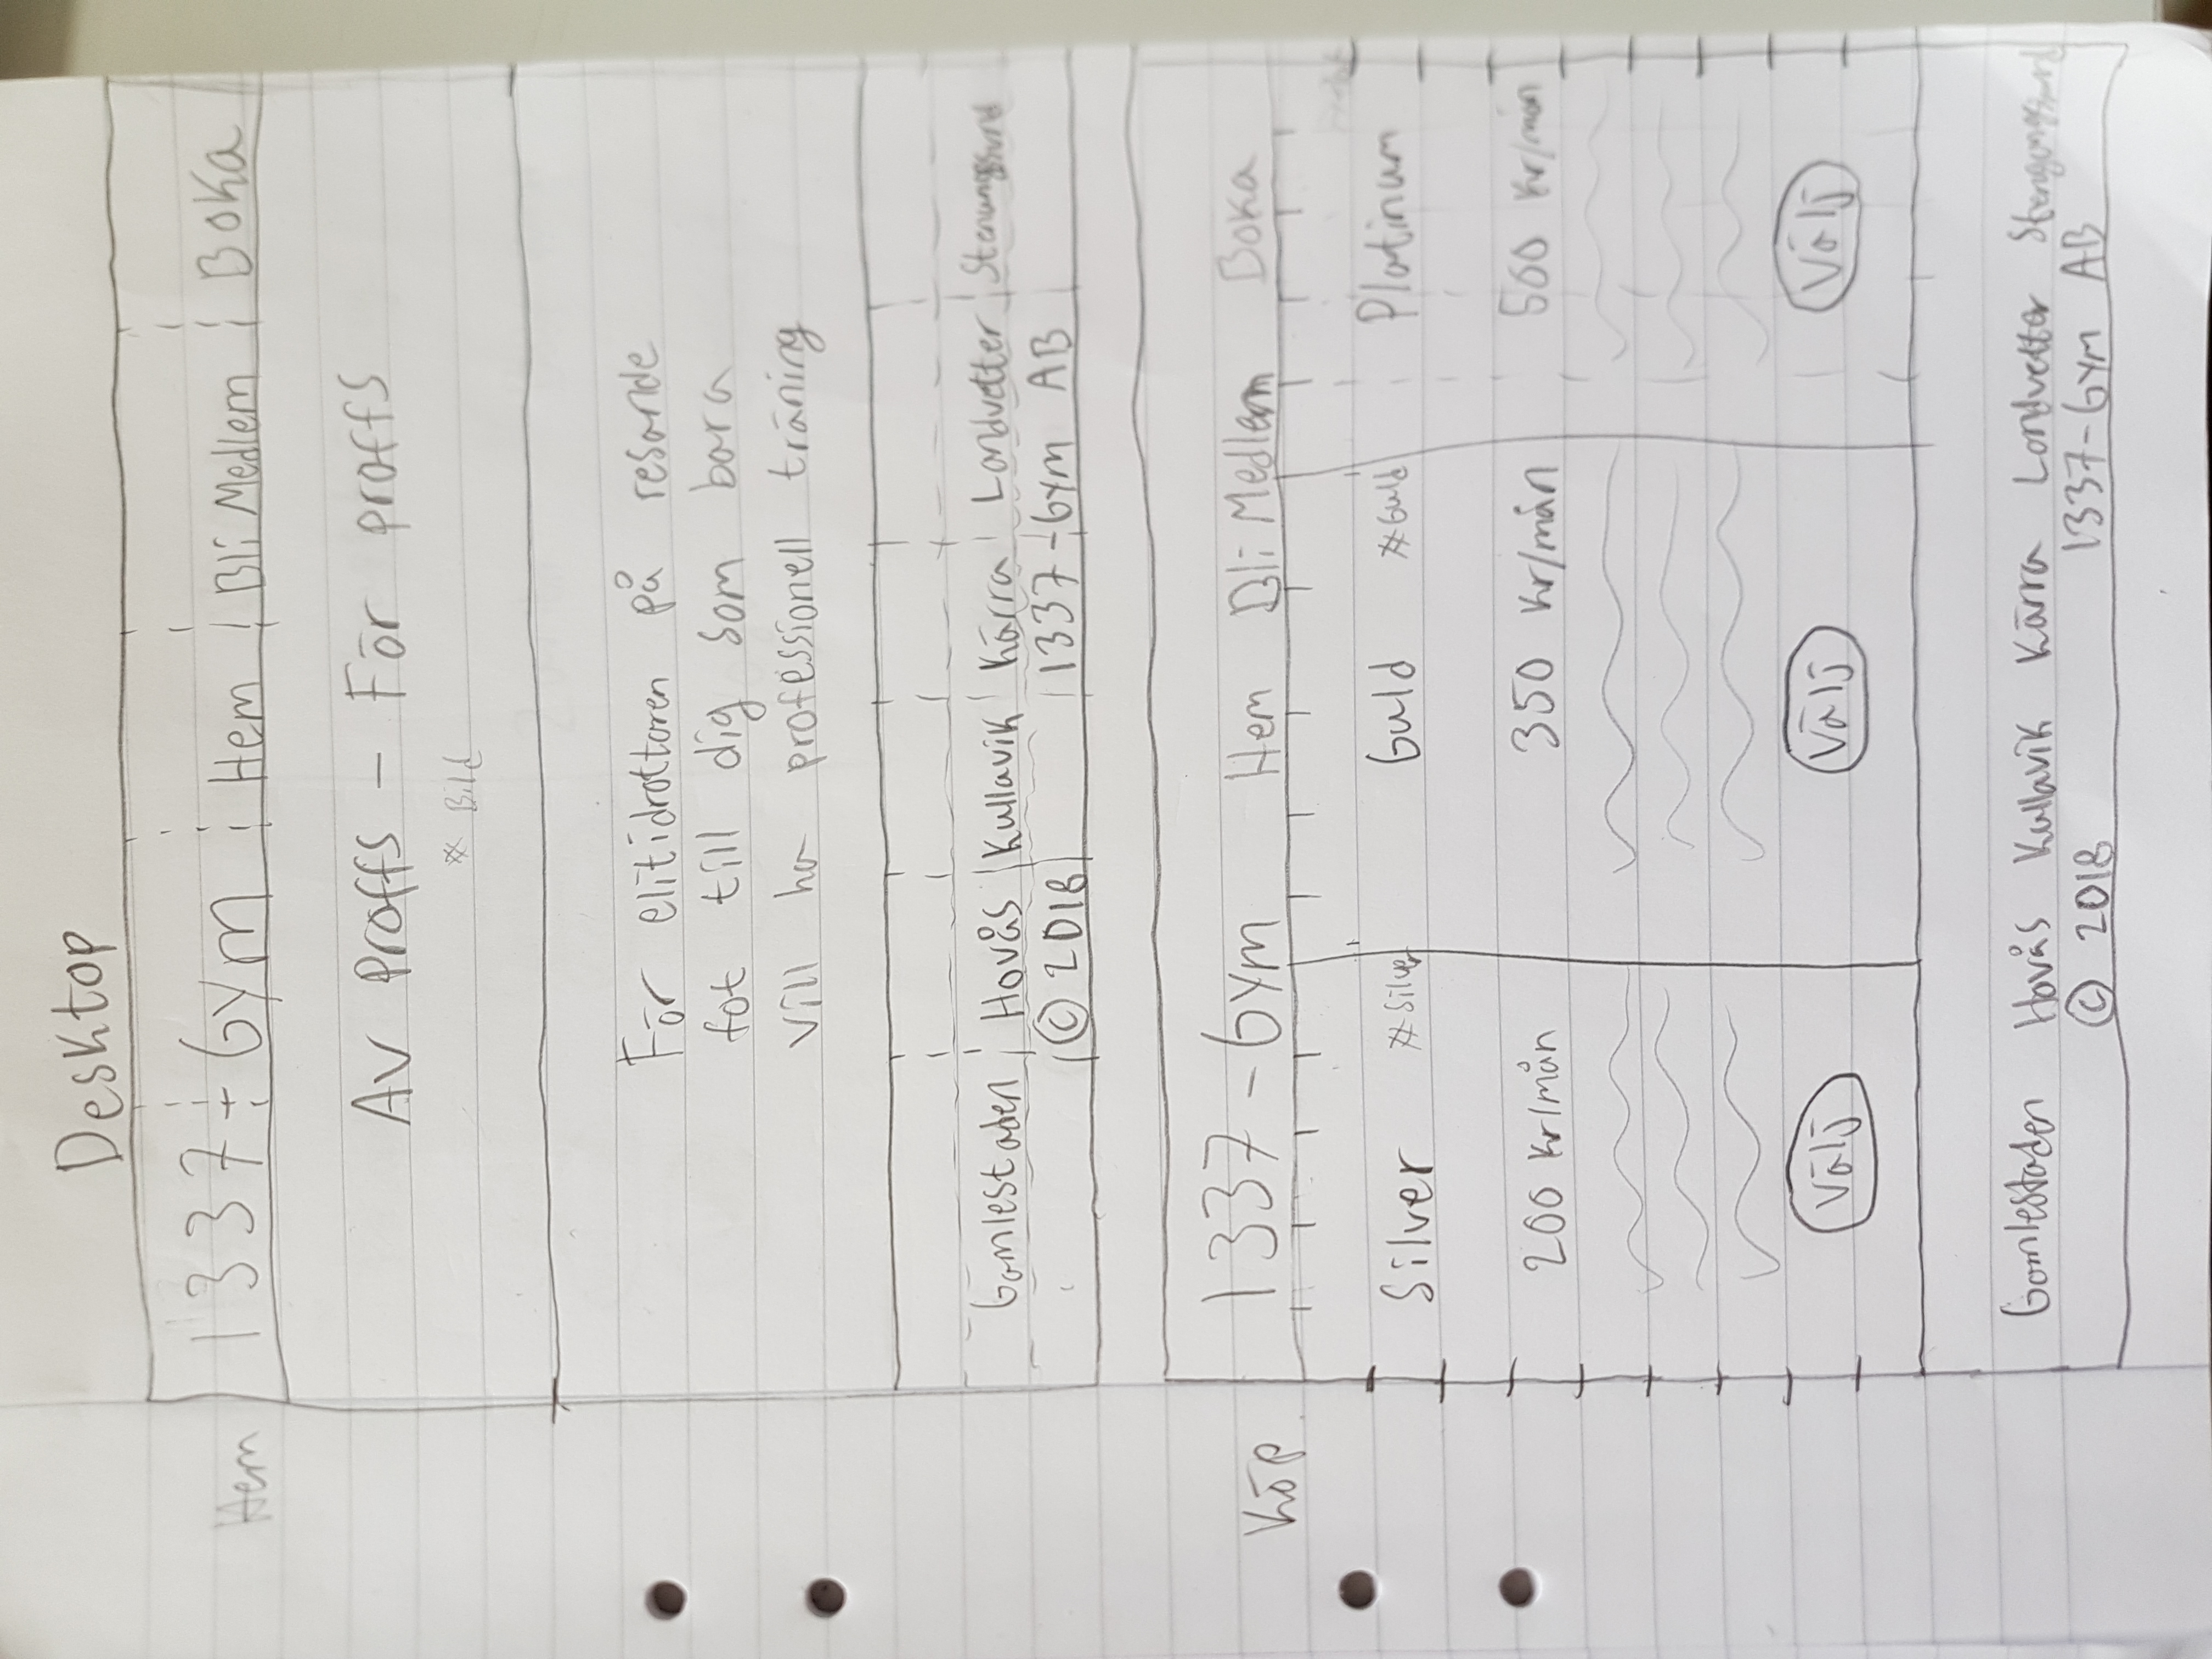 Desktop
Hem
1337-Gym Hem Bli Medlem Boka
Av Proffs - För proffs
* Bild
För elitidrottaren på resande
fot till dig som bara
vill ha professionell träning
Gamlestaden Hovås Kullavik Kärra Landvetter Stenungssund
© 2018 1337-Gym AB
Köp
1337-Gym Hem Bli Medlem Boka
Silver #Silver Guld #Guld Platinum
200 Kr/mån 350 Kr/mån 500 Kr/mån
Välj Välj Välj
Gamlestaden Hovås Kullavik Kärra Landvetter
© 2018 1337-Gym AB